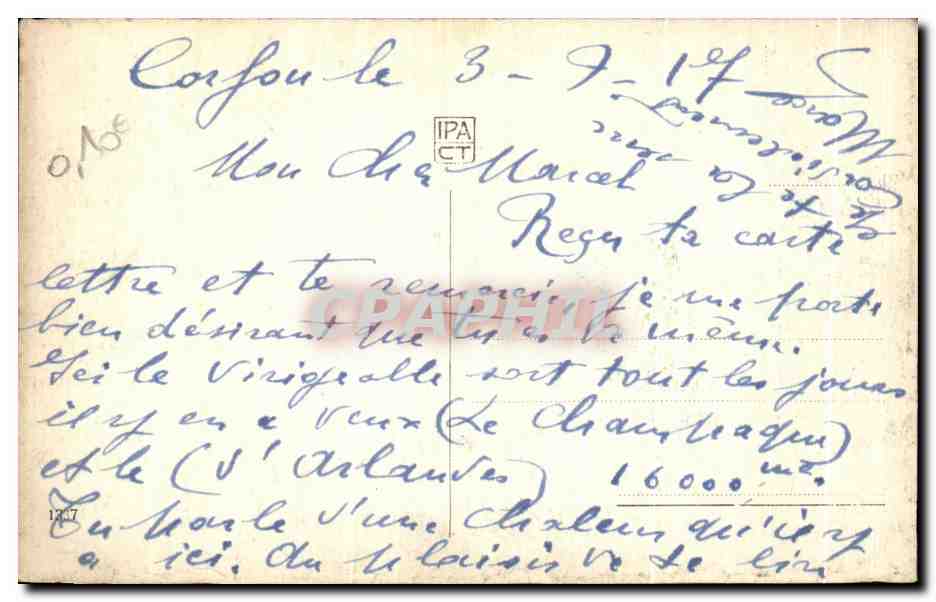 Corfou le 3 - 7 - 17
0,10€
IPA
CT
Mon Cher Marcel
Reçu ta carte
lettre et te remercie, je me porte
bien désirant que tu es la même.
Ici le dirigeable sort tout les jours
il y en a deux (Le Champagne)
et le (d'Arlandes) 16000 m3.
1337
Tu parle d'une chaleur qu'il y
a ici. Au plaisir de te lire
CPAPHIL
Marcel